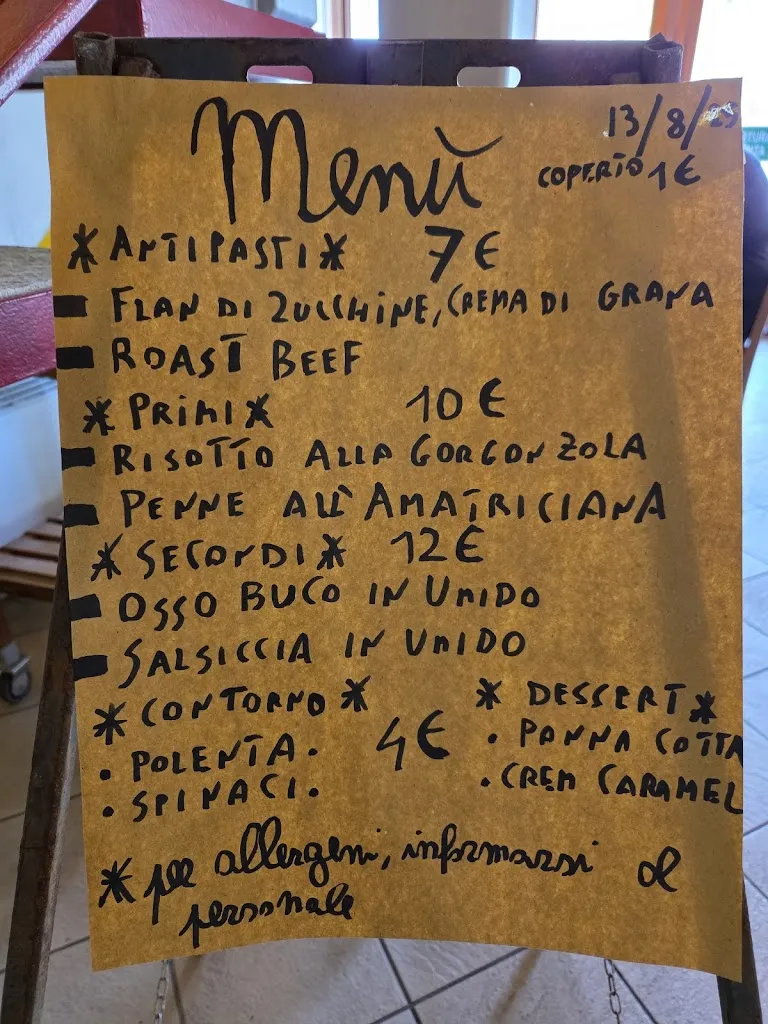 Menù
13/8/23
COPERTO 1€
*ANTIPASTI* 7€
- FLAN DI ZUCCHINE, CREMA DI GRANA
- ROAST BEEF
*PRIMI* 10€
- RISOTTO ALLA GORGONZOLA
- PENNE ALL'AMATRICIANA
*SECONDI* 12€
- OSSO BUCO IN UMIDO
- SALSICCIA IN UMIDO
*CONTORNO* 4€
. POLENTA.
. SPINACI.
* DESSERT*
. PANNA COTTA
. CREM CARAMEL
*per allergeni, informarsi al
personale